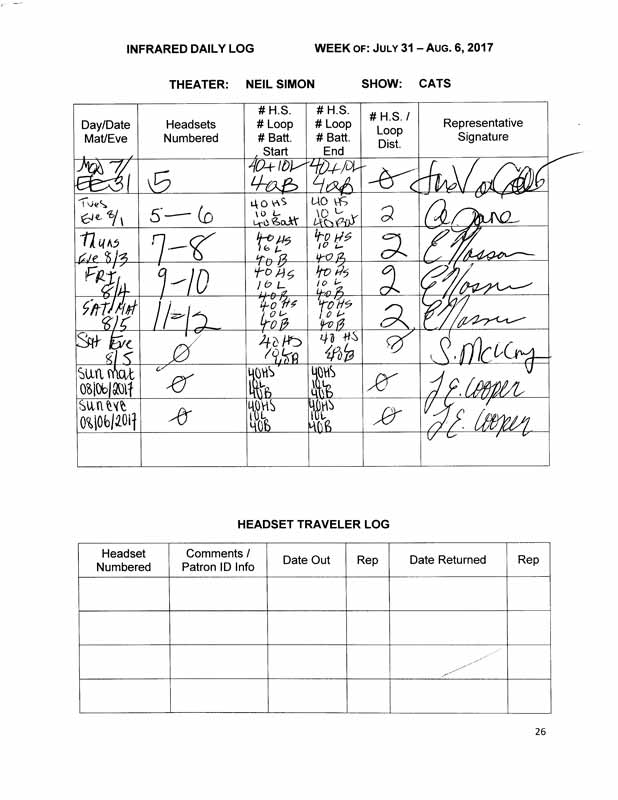 INFRARED DAILY LOG WEEK OF: JULY 31 – AUG. 6, 2017
THEATER: NEIL SIMON SHOW: CATS
Day/Date Mat/Eve Headsets Numbered # H.S. # Loop # Batt. Start # H.S. # Loop # Batt. End # H.S. / Loop Dist. Representative Signature
7/31 5 40+10L 40B 40+10L 40B 0
Tues Eve 8/1 5–6 40 HS 10 L 40 Batt 40 HS 10 L 40 Bat 2
Thurs Eve 8/3 7–8 40 HS 10 L 40 B 40 HS 10 L 40 B 2 E Mosson
FRI 8/4 9–10 40 HS 10 L 40 B 40 HS 10 L 40 B 2 E
SAT/MAT 8/5 11–12 40 HS 10 L 40 B 40 HS 10 L 40 B 2 E
Sat Eve 8/5 0 40 HS 40 HS 0 S.
Sun mat 08/06/2017 0 40HS 10L 40B 40HS 10L 40B 0 J.E. Cooper
Sun eve 08/06/2017 0 40HS 10L 40B 40HS 10L 40B 0 J.E. Cooper
HEADSET TRAVELER LOG
Headset Numbered Comments / Patron ID Info Date Out Rep Date Returned Rep
26